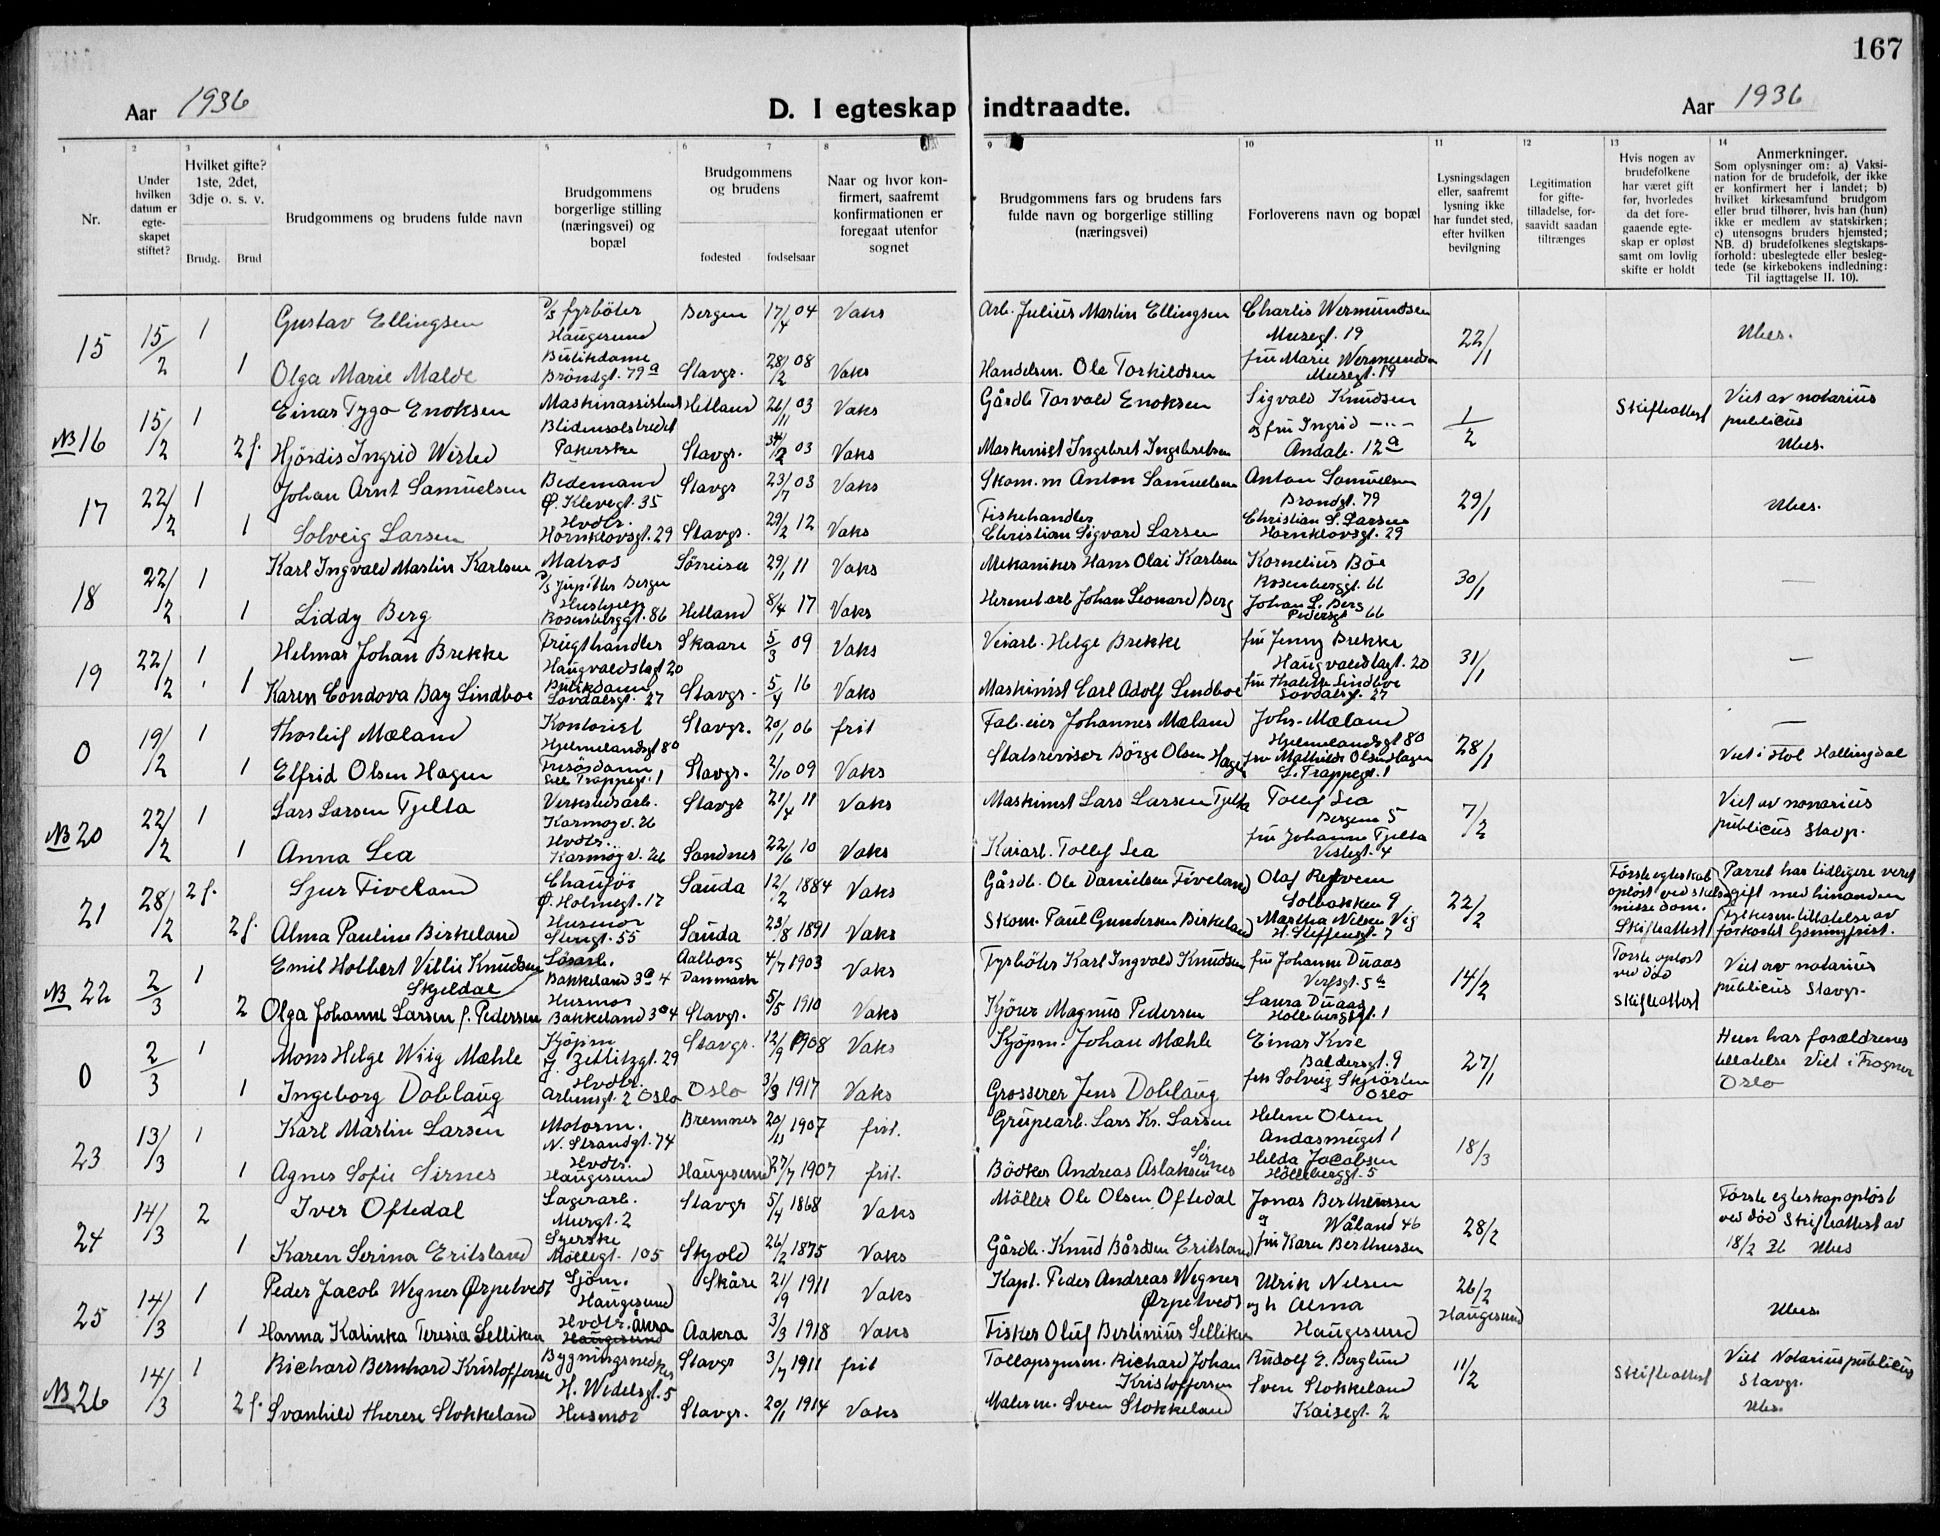 167
Aar 1936
D. I egteskap indtraadte.
Aar 1936
1 2 3 4 5 6 7 8 9 10 11 12 13 14
Nr.
Under hvilken datum er egteskapet stiftet?
Hvilket gifte? 1ste, 2det, 3dje o. s. v.
Brudg. Brud
Brudgommens og brudens fulde navn
Brudgommens borgerlige stilling (næringsvei) og bopæl
Brudgommens og brudens
fødested fødselsaar
Naar og hvor konfirmert, saafremt konfirmationen er foregaat utenfor sognet
Brudgommens fars og brudens fars fulde navn og borgerlige stilling (næringsvei)
Forloverens navn og bopæl
Lysningsdagen eller, saafremt lysning ikke har fundet sted, efter hvilken bevilgning
Legitimation for giftetilladelse, forsaavidt saadan tiltrænges
Hvis nogen av brudefolkene har været gift før, hvorledes da det foregaaende egteskap er opløst samt om lovlig skifte er holdt
Anmerkninger.
Som oplysninger om: a) Vaksination for de brudefolk, der ikke er konfirmert her i landet; b) hvilket kirkesamfund brudgom eller brud tilhører, hvis han (hun) ikke er medlem av statskirken; c) utensogns bruders hjemsted; NB. d) brudefolkenes slegtskapsforhold: ubeslegtede eller beslegtede (se kirkebokens indledning: Til iagttagelse II. 10).
15 15/2 1 Gustav Ellingsen D/S fyrböter Haugesund Bergen 17/4 04 Vaks Arb. Julius Martin Ellingsen Charlis Wermundsen Musegt. 19 22/1 Ubes.
1 Olga Marie Malde Butikdame Bröndgt. 79a Stavgr. 28/2 08 Vaks Handelsm. Ole Torkildsen fru Marie Wermundsen Musegt. 19
NB 16 15/2 1 Einar Tygo Enoksen Maskinassistent Hetland 26/11 03 Vaks Gårdb. Torvald Enoksen Sigvald Knudsen 1/2 Skifteattest Viet av notarius publicus
2 f. Hjördis Ingrid Wisted Pakerske Stavgr. 2 03 Vaks Maskinist Ingebret Ingebretsen og fru Ingrid -"- Andab. 12a Ubes.
17 22/2 1 Johan Arnt Samuelsen Bedemand Ø. Klevegt. 35 Stavgr 23/7 03 Vaks Skom. m Anton Samuelsen Anton Samuelsen Brøndgt. 79 29/1 Ubes.
1 Solveig Larsen Hvdtr. Hornklovsgt. 29 Stavgr. 29/2 12 Vaks Fiskehandler Christian Sigvard Larsen Christian S. Larsen Hornklovsgt. 29
18 22/2 1 Karl Ingvald Martin Karlsen Matros D/S Jupitter Bergen Sörreisa 29/1 11 Vaks Mekaniker Hans Olai Karlsen Kornelius Böe Rosenberggt. 66 30/1 —
1 Liddy Berg Hushjelp Rosenberggt. 86 Hetland 8/4 17 Vaks Hermetarb Johan Leonard Berg Johan L. Berg Pedersgt 66
19 22/2 1 Helmar Johan Brekke Frugthandler Haugvaldstadgt 20 Skaare 5/3 09 Vaks Veiarb. Helge Brekke fru Jenny Brekke Haugvaldstagt. 20 31/1 —
1 Karen Condova Bay Lindboe Butikdame Lovdalsgt. 27 Stavgr. 5/4 16 Vaks Maskinist Carl Adolf Lindboe fru Thalette Lindboe Lovdalsgt. 27
0 19/2 1 Thorleif Mæland Kontorist Hjelmelandsgt 80 Stavgr. 20/1 06 frit Fab. eier Johannes Mæland Johs. Mæland Hjelmelandsgt 80 28/1 —
1 Elfrid Olsen Hagen Frisördame Lille Trappegt. 1 Stavgr. 2/10 09 Vaks Statsrevisor Börge Olsen Hagen fru Mathilde Olsen Hagen L. Trappegt. 1 Viet i Hol Hallingdal
NB 20 22/2 1 Lars Larsen Tjelta Verkstedsarb. Karmøyv. 26 Stavgr 21/4 11 Vaks Maskinist Lars Larsen Tjelta Tollef Lea Bergene 5 7/2 Viet av nonarius publicus Stavgr.
1 Anna Lea Hvdtr. Karmøyv. 26 Sandnes 22/6 10 Vaks Tollef Lea fru Johanne Tjelta Vestegt. 4
21 28/2 2 f. Sjur Fiveland Chauför Ø. Holmegt. 17 Sauda 12/2 1884 Vaks Gårdb. Ole Danielsen Fiveland Olaf Refvem Solbakken 9 22/2 Förste egteskab oplöst ved skilsmisse dom. Skifteattest Parret har tidligere veret gift med hinanden Fylkesm. tillatelse av forkortet lysningfrist.
2 f. Alma Pauline Birkeland Husmor Stengt. 55 Sauda 23/8 1891 Vaks Skom. Paul Gundersen Birkeland Martha Nilsen Vig H. Steffensgt. 7
NB 22 2/3 1 Emil Holbert Villie Knudsen Skjeldal Lösarb. Bakkeland 3a 4 Aalborg Danmark 4/7 1903 Vaks Fyrböter Karl Ingvald Knudsen fru Johanne Duaas Verfsgt. 5b 14/2 Förste oplöst ved död Skifteattest Viet av notarius publicus Stavgr.
2 Olga Johanne Larsen f. Pedersen Husmor Bakkeland 3a 4 Stavgr. 5/5 1910 Vaks Kjörer Magnus Pedersen Laura Duaas Holbergsgt. 1
0 2/3 1 Mons Helge Wiig Mæhle Kjöpm. J. Zetlitzgt. 29 Stavgr. 12/9 1908 Vaks Kjöpm. Johan Mæhle Einar Kvie Baldersgt. 9 27/1 Hun har forældrenes tillatelse Viet i Frogner Oslo
1 Ingeborg Doblaug Hvdtr. Arbinsgt. 2 Oslo Oslo 3/3 1917 Vaks Grosserer Jens Doblaug frk Solveig Skjörten Oslo
23 13/3 1 Karl Martin Larsen Motorm. N. Strandgt. 74 Bremnes 20/11 1907 frit. Grupearb. Lars Kr. Larsen Helene Olsen Andasmuget 1 18/3
1 Agnes Sofie Sirnes Hvdtr. Haugesund Haugesund 27/7 1907 frit. Bödker Andreas Aslaksen Sirnes Hilda Jacobsen Holbergsgt. 5
24 14/3 2 Iver Oftedal Lagerarb. Murgt. 2 Stavgr 5/4 1868 Vaks Möller Ole Olsen Oftedal Jonas Berthiussen Wåland 46 28/2 Förste egteskap oplöst ved död Skifteattest av 18/2 36 Ubes
1 Karen Serina Eritsland Syerske Möllegt. 105 Skjold 26/2 1875 Vaks Gårdb. Knud Bårdsen Eritsland og fru Karen Berthiussen
25 14/3 1 Peder Jacob Wegner Ørpetvedt Sjöm. Haugesund Skåre 21/9 1911 Vaks Kapt. Peder Andreas Wegner Ørpetvedt Ulrik Nilsen og h Alma Haugesund 26/2 Haugesund Ubes.
1 Hanna Katinka Teresia Selliken Hvdtr. Åkra Haugesund Aakra 3/3 1918 Vaks Fisker Oluf Bertinius Selliken
NB 26 14/3 1 Richard Bernhard Kristoffersen H. Wedelsgt. 5 Stavgr 3/7 1911 frit Tollopsynsm. Richard Johan Kristoffersen Rudolf E. Berglund 11/2 Skifteattest Viet Notarius publicus Stavgr. Ubes.
2 f. Svanhild Therese Stokkeland Husmor Stavgr. 20/1 1914 Vaks Malerm. Sven Stokkeland Sven Stokkeland Kaisegt. 2